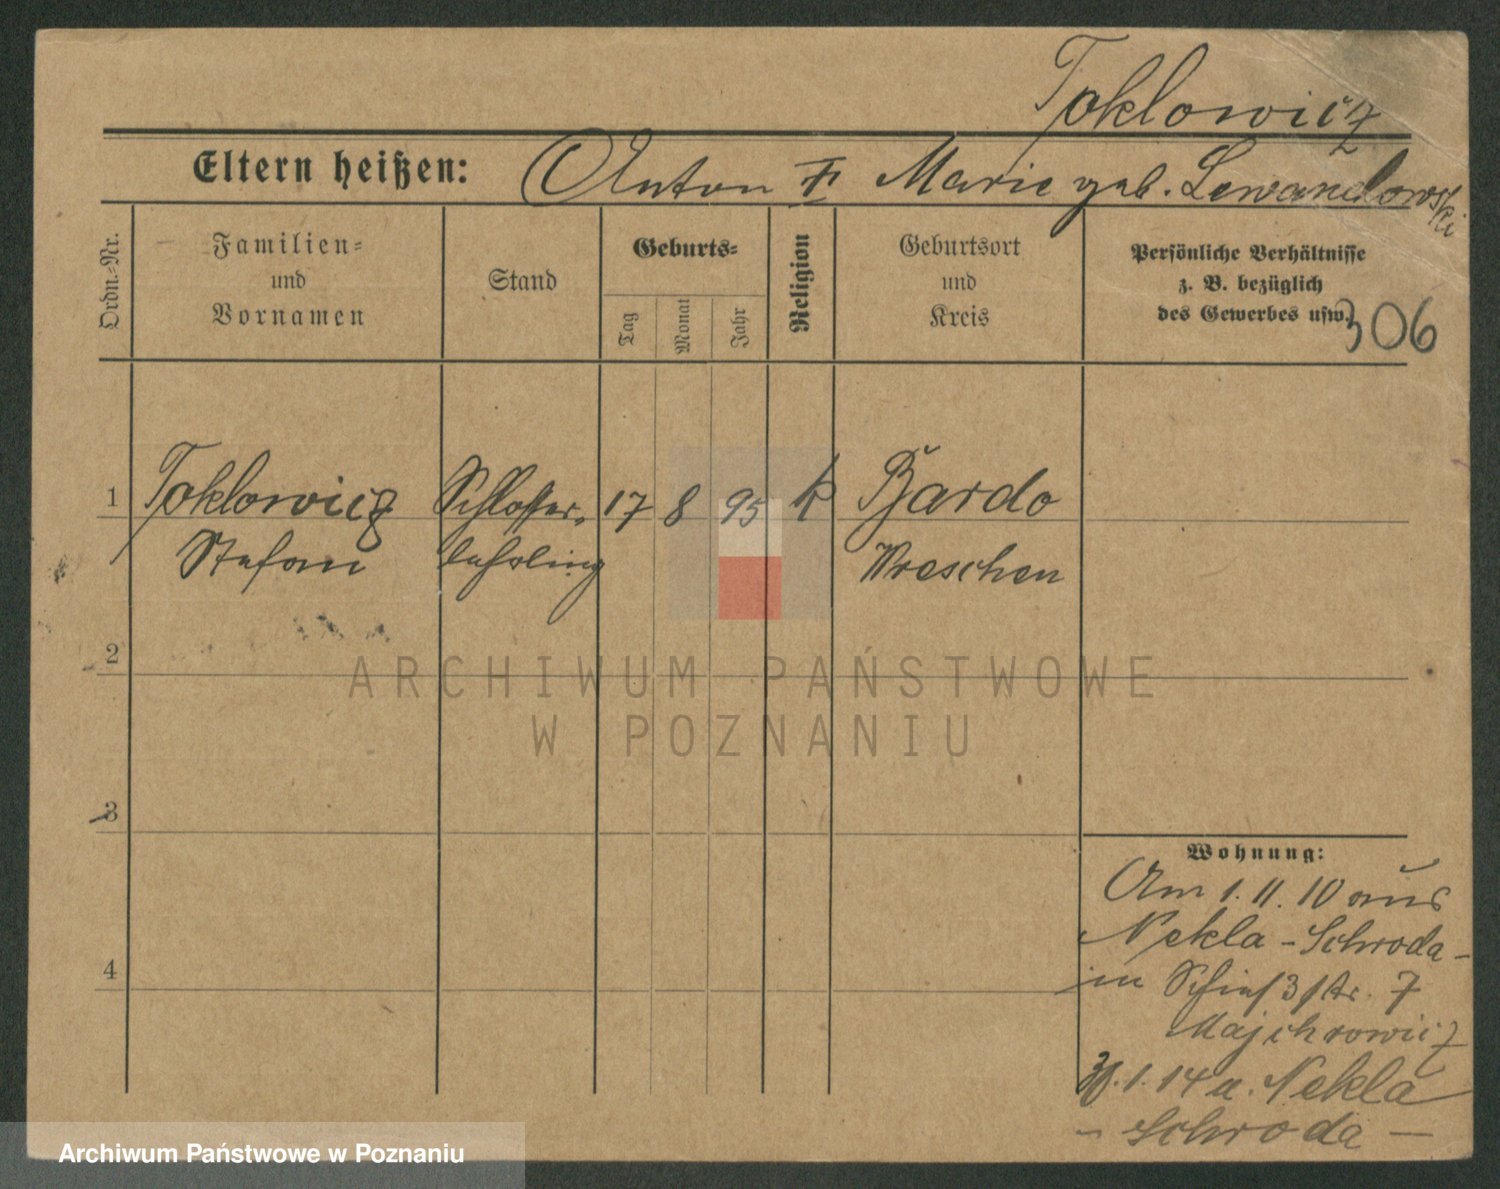 Toklowicz
Eltern heißen: Anton ‡ Marie geb. Lewandowski
Ordn.-Nr.
Familien-
und
Vornamen
Stand
Geburts-
Tag
Monat
Jahr
Religion
Geburtsort
und
Kreis
Persönliche Verhältnisse
z. B. bezüglich
des Gewerbes usw.
306
1 Toklowicz Schlosser- 17 8 95 k Bardo
Stefan lehrling Wreschen
2
3
4
ARCHIWUM PAŃSTWOWE
W POZNANIU
Wohnung:
Am 1. 11. 10 aus
Nekla - Schroda -
in 3 str. 7
Majchrowicz
1. 14 a. Nekla
- Schroda -
Archiwum Państwowe w Poznaniu